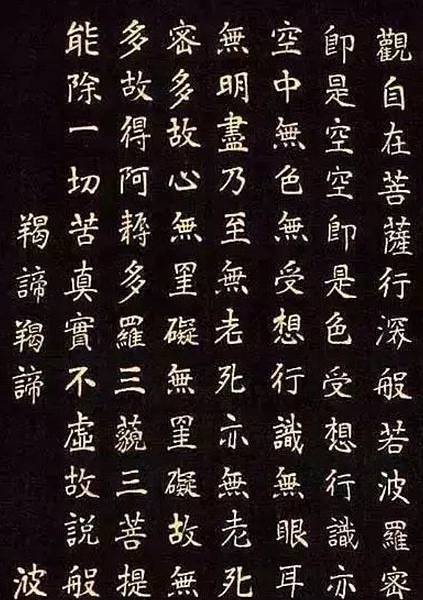 觀自在菩薩行深般若波羅密
即是空空即是色受想行識亦
空中無色無受想行識無眼耳
無明盡乃至無老死亦無老死
密多故心無罣礙無罣礙故無
多故得阿耨多羅三藐三菩提
能除一切苦真實不虛故説般
羯諦羯諦 波